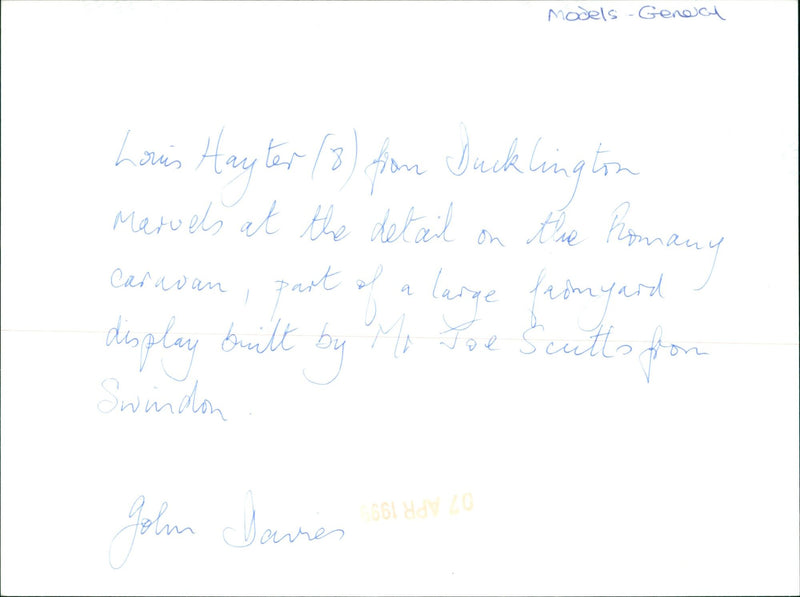 Models - General
Louis Hayter (8) from Ducklington
Marvels at the detail on the Romany
caravan, part of a large farmyard
display built by Mr Joe Scutts from
Swindon.
John Davies
07 APR 199